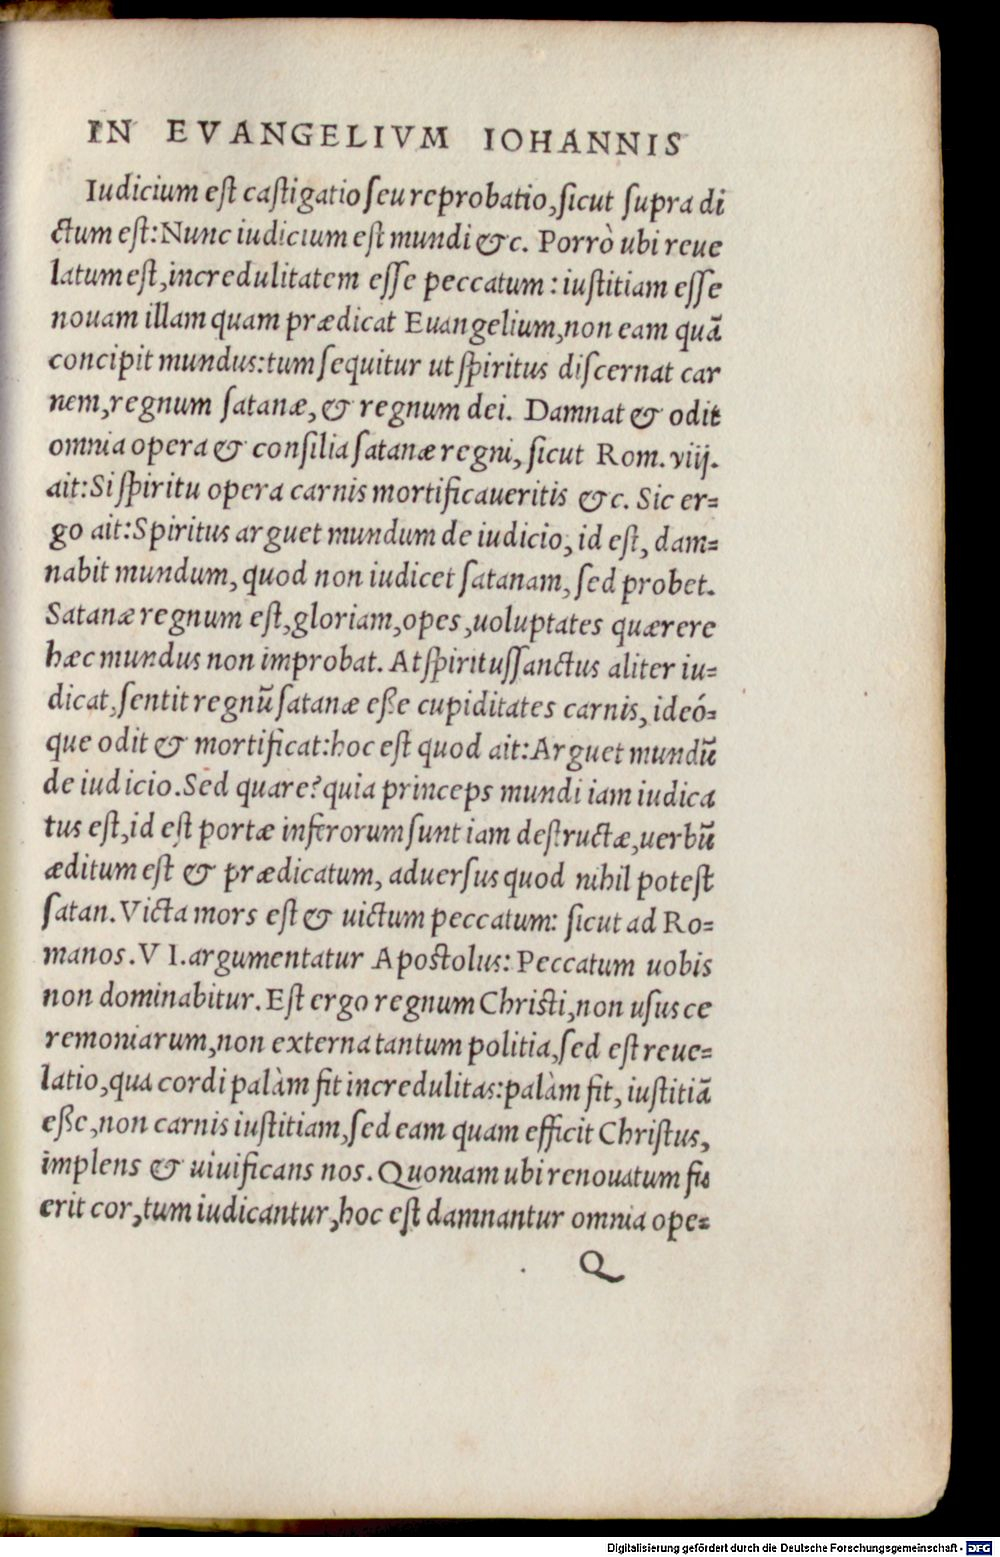 IN EVANGELIVM IOHANNIS
Iudicium est castigatio seu reprobatio, sicut supra di
ctum est: Nunc iudicium est mundi &c. Porrò ubi reue
latum est, incredulitatem esse peccatum: iustitiam esse
nouam illam quam prædicat Euangelium, non eam quã
concipit mundus: tum sequitur ut spiritus discernat car
nem, regnum satanæ, & regnum dei. Damnat & odit
omnia opera & consilia satanæ regni, sicut Rom. viij.
ait: Si spiritu opera carnis mortificaueritis &c. Sic er=
go ait: Spiritus arguet mundum de iudicio, id est, dam=
nabit mundum, quod non iudicet satanam, sed probet.
Satanæ regnum est, gloriam, opes, uoluptates quærere
hæc mundus non improbat. At spiritussanctus aliter iu=
dicat, sentit regnũ satanæ eße cupiditates carnis, ideó=
que odit & mortificat: hoc est quod ait: Arguet mundũ
de iudicio. Sed quare? quia princeps mundi iam iudica
tus est, id est portæ inferorum sunt iam destructæ, uerbũ
æditum est & prædicatum, aduersus quod nihil potest
satan. Victa mors est & uictum peccatum: sicut ad Ro=
manos. VI. argumentatur Apostolus: Peccatum uobis
non dominabitur. Est ergo regnum Christi, non usus ce
remoniarum, non externa tantum politia, sed est reue=
latio, qua cordi palàm fit incredulitas: palàm fit, iustitiã
eße, non carnis iustitiam, sed eam quam efficit Christus,
implens & uiuificans nos. Quoniam ubi renouatum fu
erit cor, tum iudicantur, hoc est damnantur omnia ope=
Q
Digitalisierung gefördert durch die Deutsche Forschungsgemeinschaft - DFG